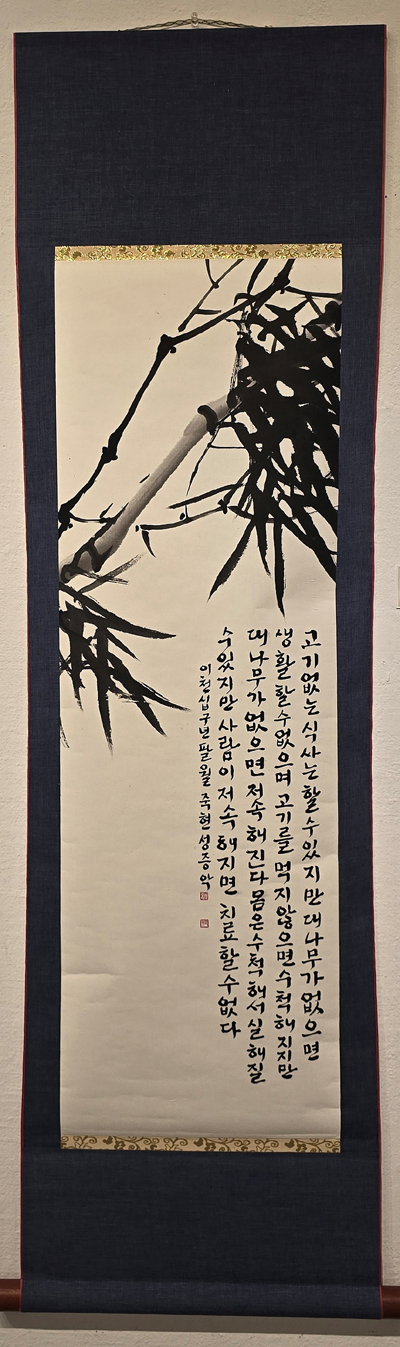 고기없는식사는할수있지만대나무가없으면
생활할수없으며고기를먹지않으면수척해지지만
대나무가없으면저속해진다몸은수척해서실해질
수있지만사람이저속해지면치료할수없다
이천십구년팔월죽현성증악